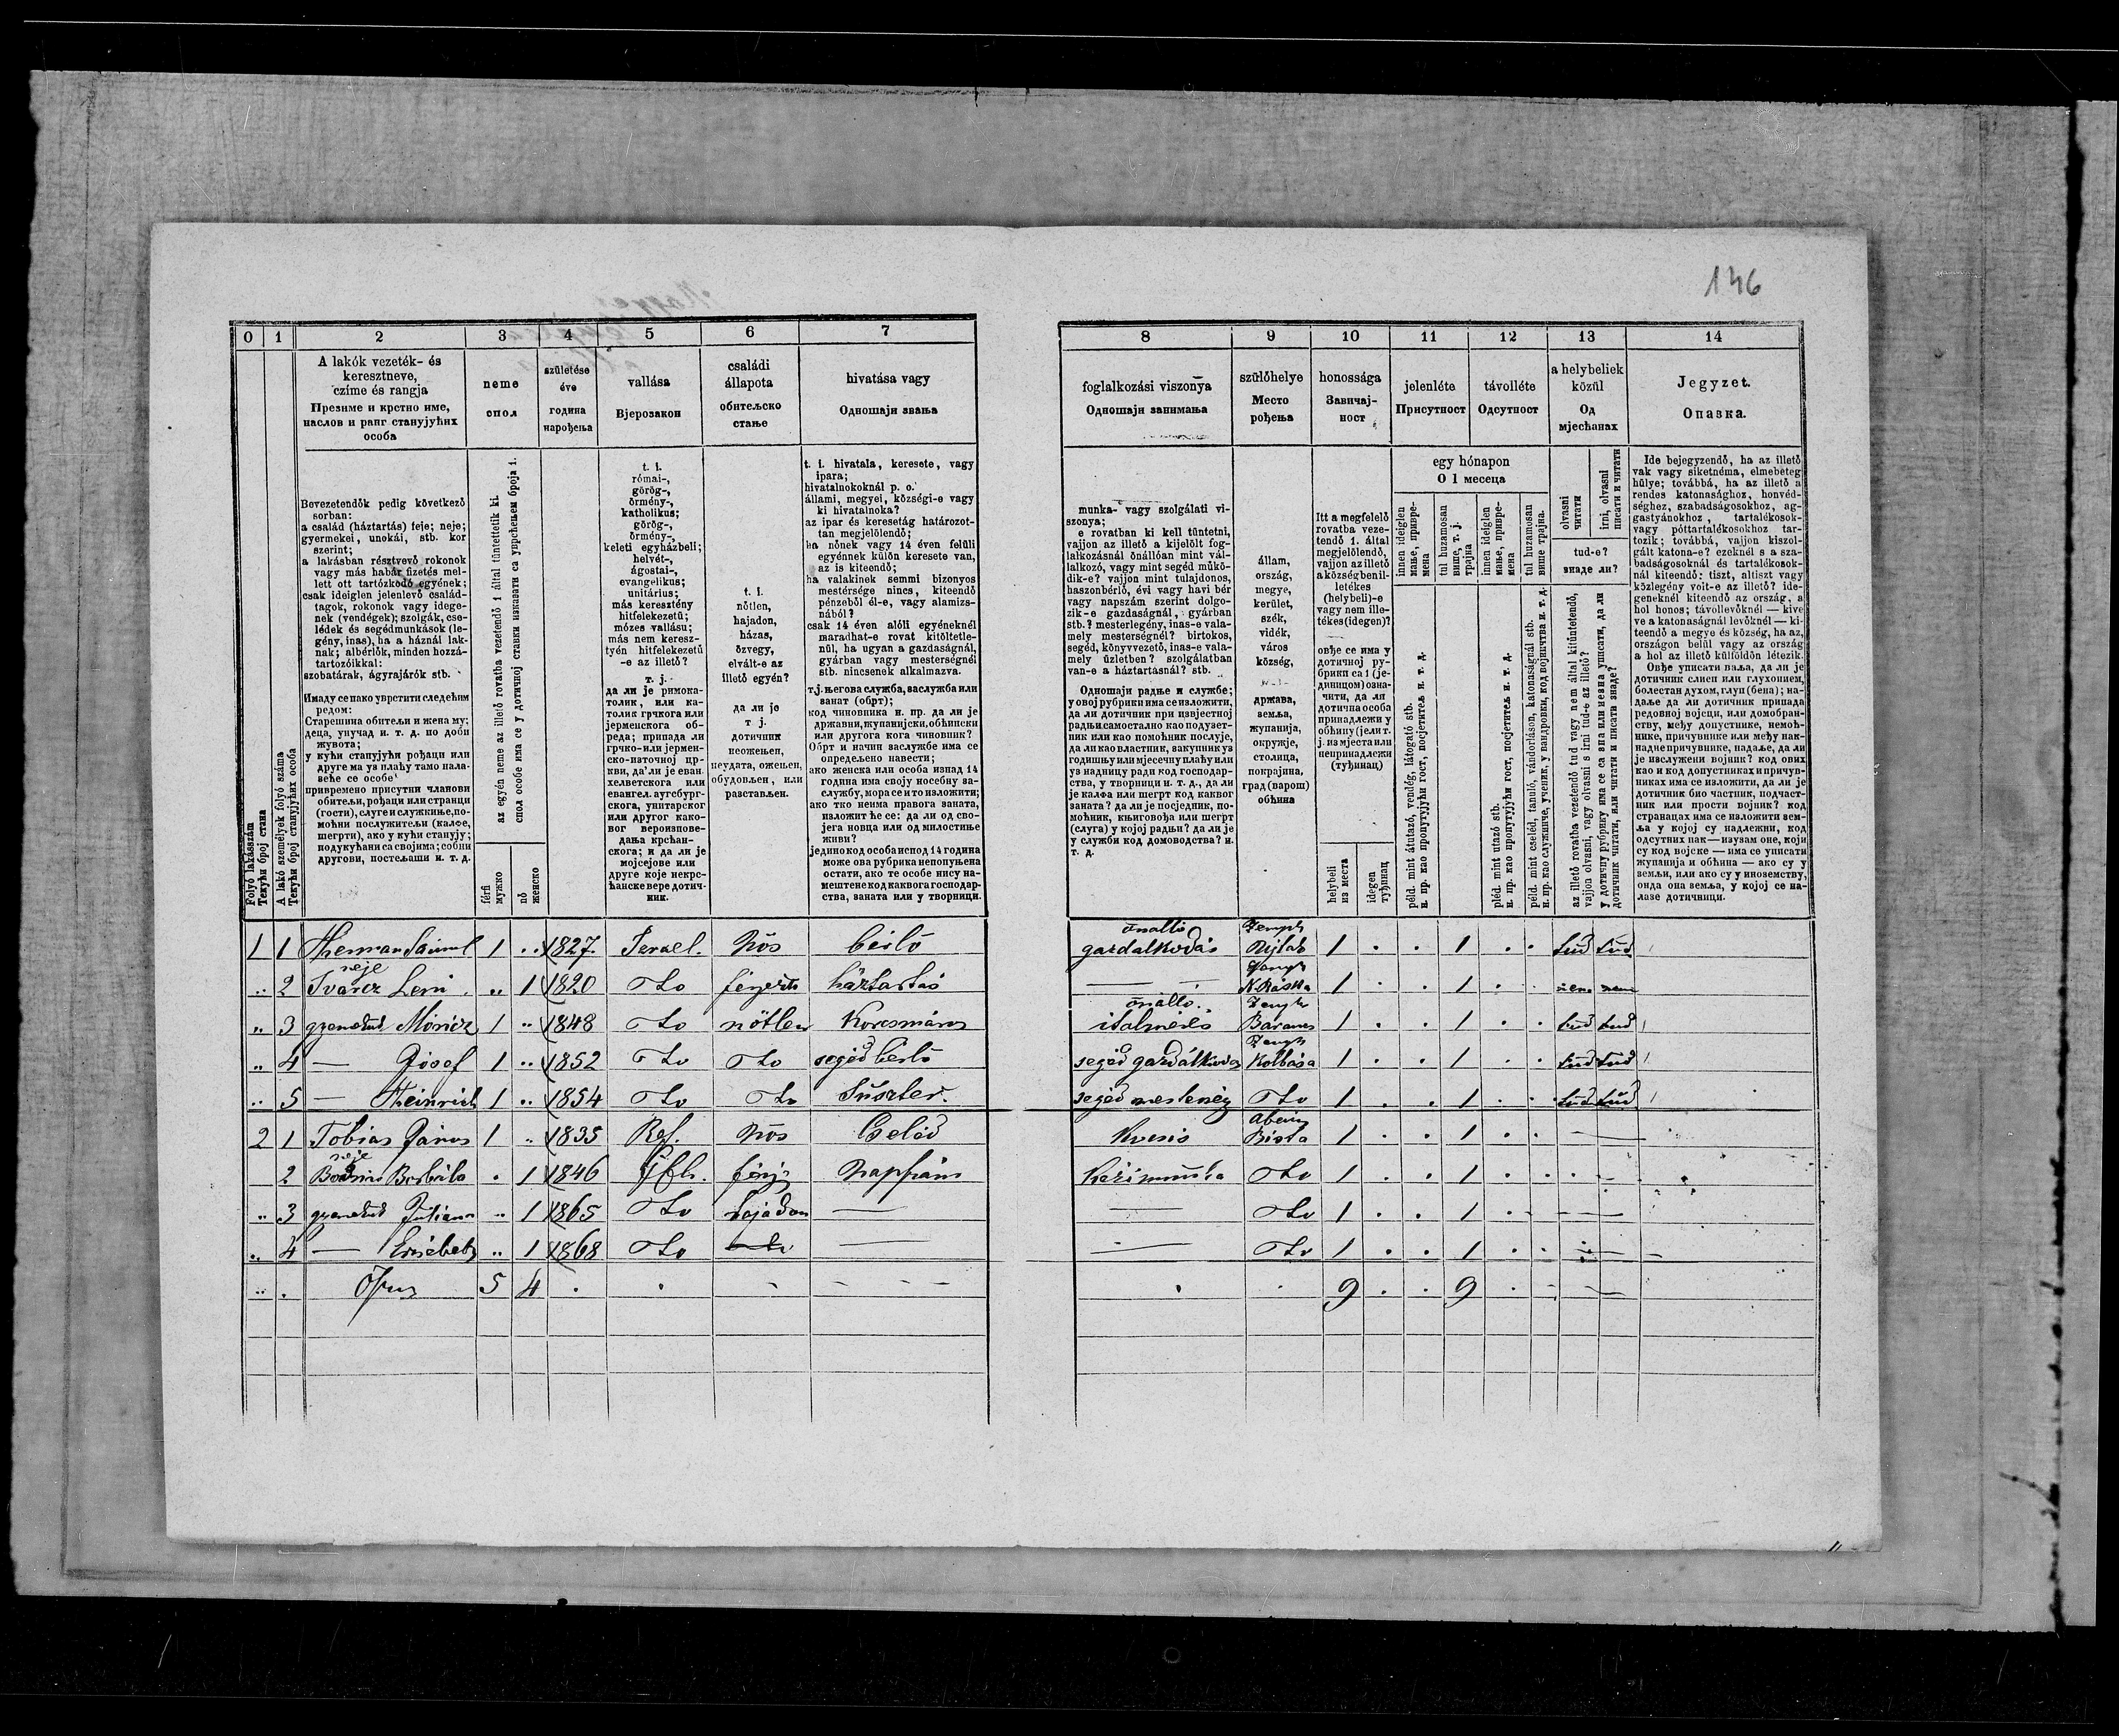 146
0 1 2 3 4 5 6 7
A lakók vezeték- és
keresztneve,
czíme és rangja
Презиме и крстно име,
наслов и ранг станујућих
особа
neme
спол
születése
éve
година
нарођења
vallása
Вјерозакон
családi
állapota
обитељско
стање
hivatása vagy
Одношаји звања
Folyó lakásszám
Текући број стана
A lakó személyek folyó száma
Текући број станујућих особа
Bevezetendők pedig következő
sorban:
a család (háztartás) feje; neje;
gyermekei, unokái, stb. kor
szerint;
a lakásban résztvevő rokonok
vagy más habár fizetés mel-
lett ott tartózkodó egyének;
csak ideiglen jelenlevő család-
tagok, rokonok vagy idege-
nek (vendégek); szolgák, cse-
lédek és segédmunkások (le-
gény, inas), ha a háznál lak-
nak; albérlők, minden hozzá-
tartozóikkal:
szobatárak, ágyrajárók stb.
Имаду се пако уврстити следећим
редом:
Старешина обитељи и жена му;
деца, унучад и. т. д. по доби
живота;
у кући станујући рођаци или
друге ма уз плаћу тамо нала-
веће се особе
привремено присутни чланови
обитељи, рођаци или странци
(гости), слуге и служкиње, по-
моћни послужитељи (калфе,
шегрти), ако у кући станују;
подукућани са својима; собни
другови, постељаши и. т. д.
az egyén neme az illető rovatba vezetendő 1 által tüntettetik ki.
спол особе има се у дотичној ставки изказати са уврћењем броја 1.
férfi
мужко
nő
женско
t. i.
római-,
görög-,
örmény-,
katholikus;
görög-,
örmény-,
keleti egyházbeli;
helvét-,
ágostai-,
evangelikus;
unitárius;
más keresztény
hitfelekezetű;
mózes vallásu;
más nem keresz-
tyén hitfelekezetű
-e az illető?
т. ј.
да ли је римока-
толик, или ка-
толик грчкога или
јерменског об-
реда; припада ли
грчко- или јермен-
ско-източној цр-
кви, да'ли је еван.
хелветског или
евангел. аугсбург-
скога, унитарског
или другог како-
вог вероизпове-
дања крсћан-
скога; и да ли је
мојсејове или
друге које некрс-
ћанске вере дотич-
ник.
t. i.
nőtlen,
hajadon,
házas,
özvegy,
elvált-e az
illető egyén?
да ли је
т ј.
дотичник
неожењен,
неудата, ожењен,
обудовљен, или
разстављен.
t. i. hivatala, keresete, vagy
ipara;
hivatalnokoknál p. o.
állami, megyei, községi-e vagy
ki hivatalnoka?
az ipar és keresetág határozot-
tan megjelölendő;
ha nőnek vagy 14 éven felüli
egyénnek külön keresete van,
az is kiteendő;
ha valakinek semmi bizonyos
mestérsége nincs, kiteendő
pénzeből él-e, vagy alamizs-
nából?
csak 14 éven alóli egyéneknél
maradhat-e rovat kitöltetle-
nül, ha ugyan a gazdaságnál,
gyárban vagy mesterségnél
stb. nincsenek alkalmazva.
т.ј. његова служба, заслужба или
занат (обрт);
код чиновника н. пр. да ли је
државни, жупанијски, обћински
или другога кога чиновник?
Обрт и начин заслужбе има се
опредељено навести;
ако женска или особа изнад 14
година има своју посебну за-
службу, мора се и то изложити;
ако тко неима правога заната,
изложит ће се: да ли од сво-
јега новца или од милостиње
живи?
једино код особа испод 14 година
може ова рубрика непопуњена
остати, ако те особе нису на-
мештене код каквога господар-
ства, заната или у творници.
1 1 Herman Sámuel 1 1827 Israel. Nős bérlő
neje
2 Svarcz Leni 1 1820 férjezet háztartás
3 gyermekük Móricz 1 1848 nőtlen Korcsmáros
4 — Jósef 1 1852 segéd bérlő
5 — Heinrich 1 1854 Suszter.
2 1 Tobias János 1 1835 Ref. Nős Cseléd
neje
2 Borbála 1 1846 férjz Napszám
3 gyermekük Juliana 1 1865 hajadon —
4 — Ersébeth 1 1868 —
5 4
8 9 10 11 12 13 14
foglalkozási viszonya
Одношаји занимања
szülőhelye
Место
рођења
honossága
Завичај-
ност
jelenléte
Присутност
távolléte
Одсутност
a helybeliek
közül
Од
мјесћанах
Jegyzet.
Опазка.
munka- vagy szolgálati vi-
szonya;
e rovatban ki kell tüntetni,
vajjon az illető a kijelölt fog-
lalkozásnál önállóan mint vál-
lalkozó, vagy mint segéd műkö-
dik-e? vajjon mint tulajdonos,
haszonbérlő, évi vagy havi bér
vagy napszám szerint dolgo-
zik-e gazdaságnál, gyárban
stb.? mesterlegény, inas-e vala-
mely mesterségnél? birtokos,
segéd, könyvvezető, inas-e vala-
mely üzletben? szolgálatban
van-e a háztartásnál? stb.
Одношаји радње и службе;
у овој рубрики има се изложити,
да ли дотичник при извјестној
радњи самостално као подузет-
ник или као помоћник послује,
да ли као властник, закупник уз
годишњу или мјесечну плаћу или
уз надницу ради код господар-
ства, у творници и. т. д., да ли
је калфа или шегрт код каквог
заната? да ли је посједник, по-
моћник, књиговођа или шегрт
(слуга) у којој радњи? да ли је
у служби код домоводства? и.
т. д.
állam,
ország,
megye,
kerület,
szék,
vidék,
város
község,
држава,
земља,
жупанија,
окружје,
столица,
покрајина,
град (варош)
обћина
Itt a megfelelő
rovatba veze-
tendő 1. által
megjelölendő,
vajjon az illető
a községben il-
letékes
(helybeli)-e
vagy nem ille-
tékes (idegen)?
овђе се има у
дотичној ру-
брики са 1 (је-
диницом) озна-
чити, да ли
дотична особа
принадлежи у
обћину (јели т.
ј. из мјеста или
непринадлежи
(туђинац)
helybeli
из места
idegen
туђинац
egy hónapon
О 1 месеца
innen ideiglen
мање, привре-
мена
tul huzamosan
више, т. ј.
трајна
innen ideiglen
мање, привре-
мена
tul huzamosan
више трајна.
péld. mint átutazó, vendég, látogató stb.
н. пр. као пропутујући гост, посјетитељ и. т. д.
pléd. mint utazó stb.
н. пр. као пропутујући гост, посјетитељ и. т. д.
péld. mint cseléd, tanuló, vándorláson, katonaságnál stb.
н. пр. као служниче, ученик, у вандровки, код војничтва и. т. д.
olvasni
читати
irni, olvasni
писати и читати
tud-e?
знаде ли?
az illető rovatba vezetendő tud vagy nem által kitüntetendő,
vajjon olvasni, vagy olvasni s irni tud-e az illető?
у дотичну рубрику има се са зна или незна уписати, да ли
дотичник читати, или читати и писати знаде?
Ide bejegyzendő, ha az illető
vak vagy siketnéma, elmebeteg
hülye; továbbá, ha az illető a
rendes katonasághoz, honvéd-
séghez, szabadságosokhoz, ag-
gastyánokhoz, tartalékosok-
vagy póttartalékosokhoz tar-
tozik; továbbá, vajjon kiszol-
gált katona-e? ezeknél s a sza-
badságosoknál és tartalékosok-
nál kiteendő: tiszt, altiszt vagy
közlegény volt-e az illető? ide-
geneknél kiteendő az ország, a
hol honos; távollevőknél — kive
ve a katonaságnál levőknél — ki-
teendő a megye és község, ha az
országon belül vagy az ország
a hol az illető külföldön létezik.
Овђе уписати ваља, да ли је
дотичник слиеп или глухонием,
болестан духом, глуп (бена); на-
даље да ли дотичник припада
редовној војсци, или домобран-
ству, међу допустнике, немоћ-
нике, причувнике или међу нак-
надне причувнике, надаље, да ли
је излужени војник? код ових
као и код допустниках и причув-
никах има се изложити, да ли је
дотичник био частник, подчаст-
ник или прости војник? код
странацах има се изложити зем-
ља у којој су надлежни, код
одсутних пак — изузам оне, који
су код војске — има се уписати
жупанија и обћина — ако су у
земљи, или ако су у иноземству,
онда она земља, у којој се на-
лазе дотичници.
önálló Zempl
gazdalkodás 1 1 tud tud
N. Ráska 1 1 nem nem
önálló.
italmérés 1 1 tud tud
segéd gazdálkodás Kolbása 1 1 tud tud
segéd mesterség 1 1 tud tud
Abauj
Kocsis Bista 1 1
Kézimunka 1 1
— 1 1
— 1 1
9 9